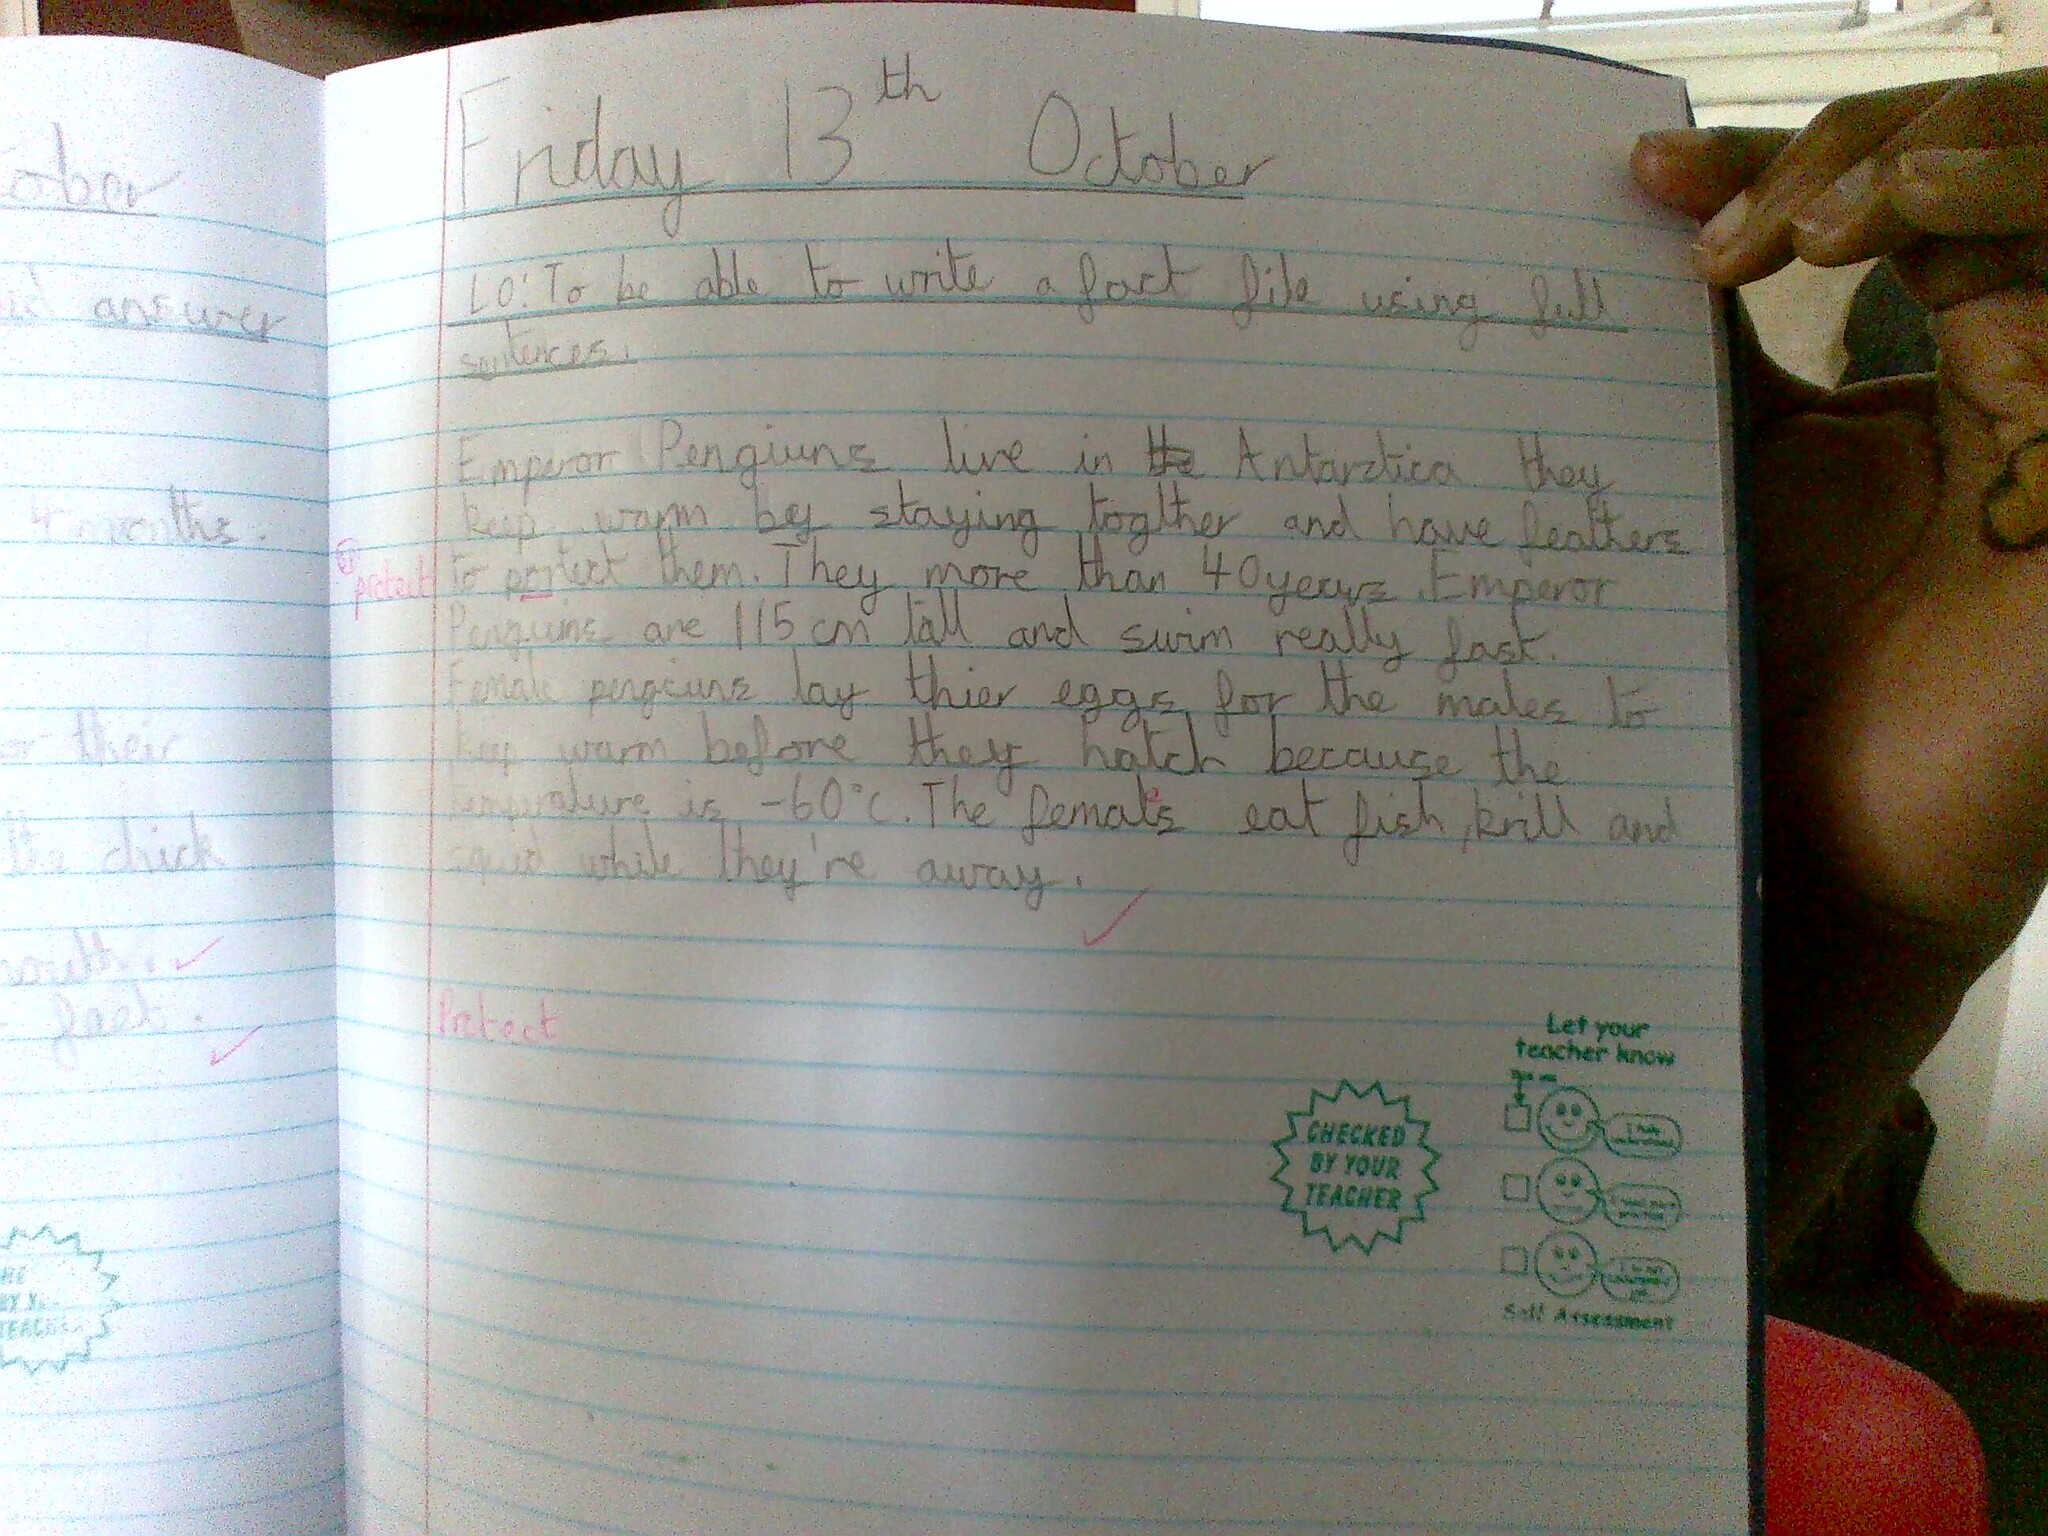 tober
answer
4 months.
or their
the chick
south.
feet.
Friday 13th October
LO: To be able to write a fact file using full
sentences.
Emperor Pengiuns live in the Antarctica they
keep warm by staying togther and have feathers
to portect them. They more than 40 years. Emperor
protect
Penguins are 115 cm tall and swim really fast.
Female pengiuns lay thier eggs for the males to
keep warm before they hatch because the
temperature is -60°c. The females eat fish, krill and
squid while they're away.
Protect
Let your
teacher know
CHECKED
BY YOUR
TEACHER
Self Assessment